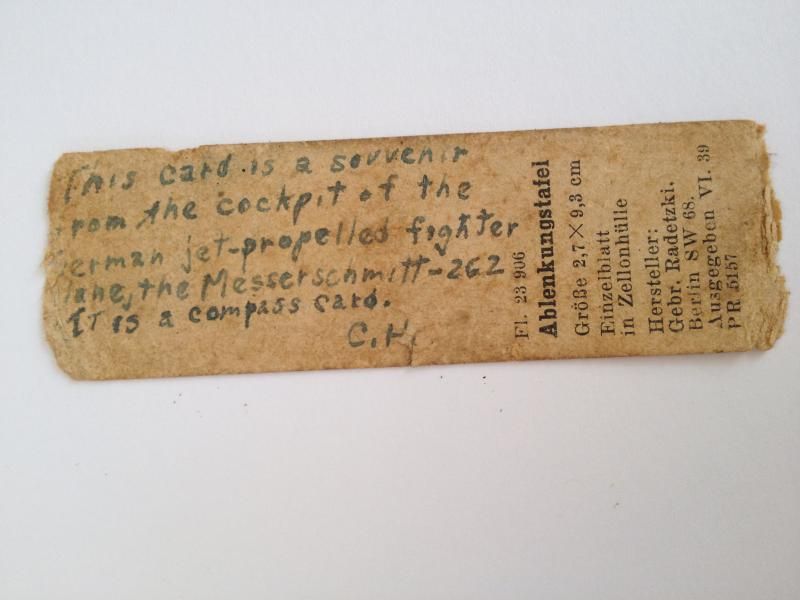 This card is a souvenir
from the cockpit of the
German jet-propelled fighter
plane, the Messerschmitt-262
It is a compass card.
C.H.
Fl. 23 906
Ablenkungstafel
Größe 2,7 × 9,3 cm
Einzelblatt
in Zellonhülle
Hersteller:
Gebr. Radetzki.
Berlin SW 68.
Ausgegeben VI. 39
PR 5157